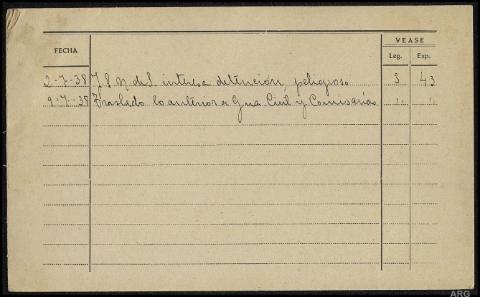 FECHA
VEASE
Leg. Exp.
2-7-38 J S N del interesa detención, peligroso 3 43
9-7-35 Traslado lo anterior a Gua. Civil y Comisaría " "
ARG